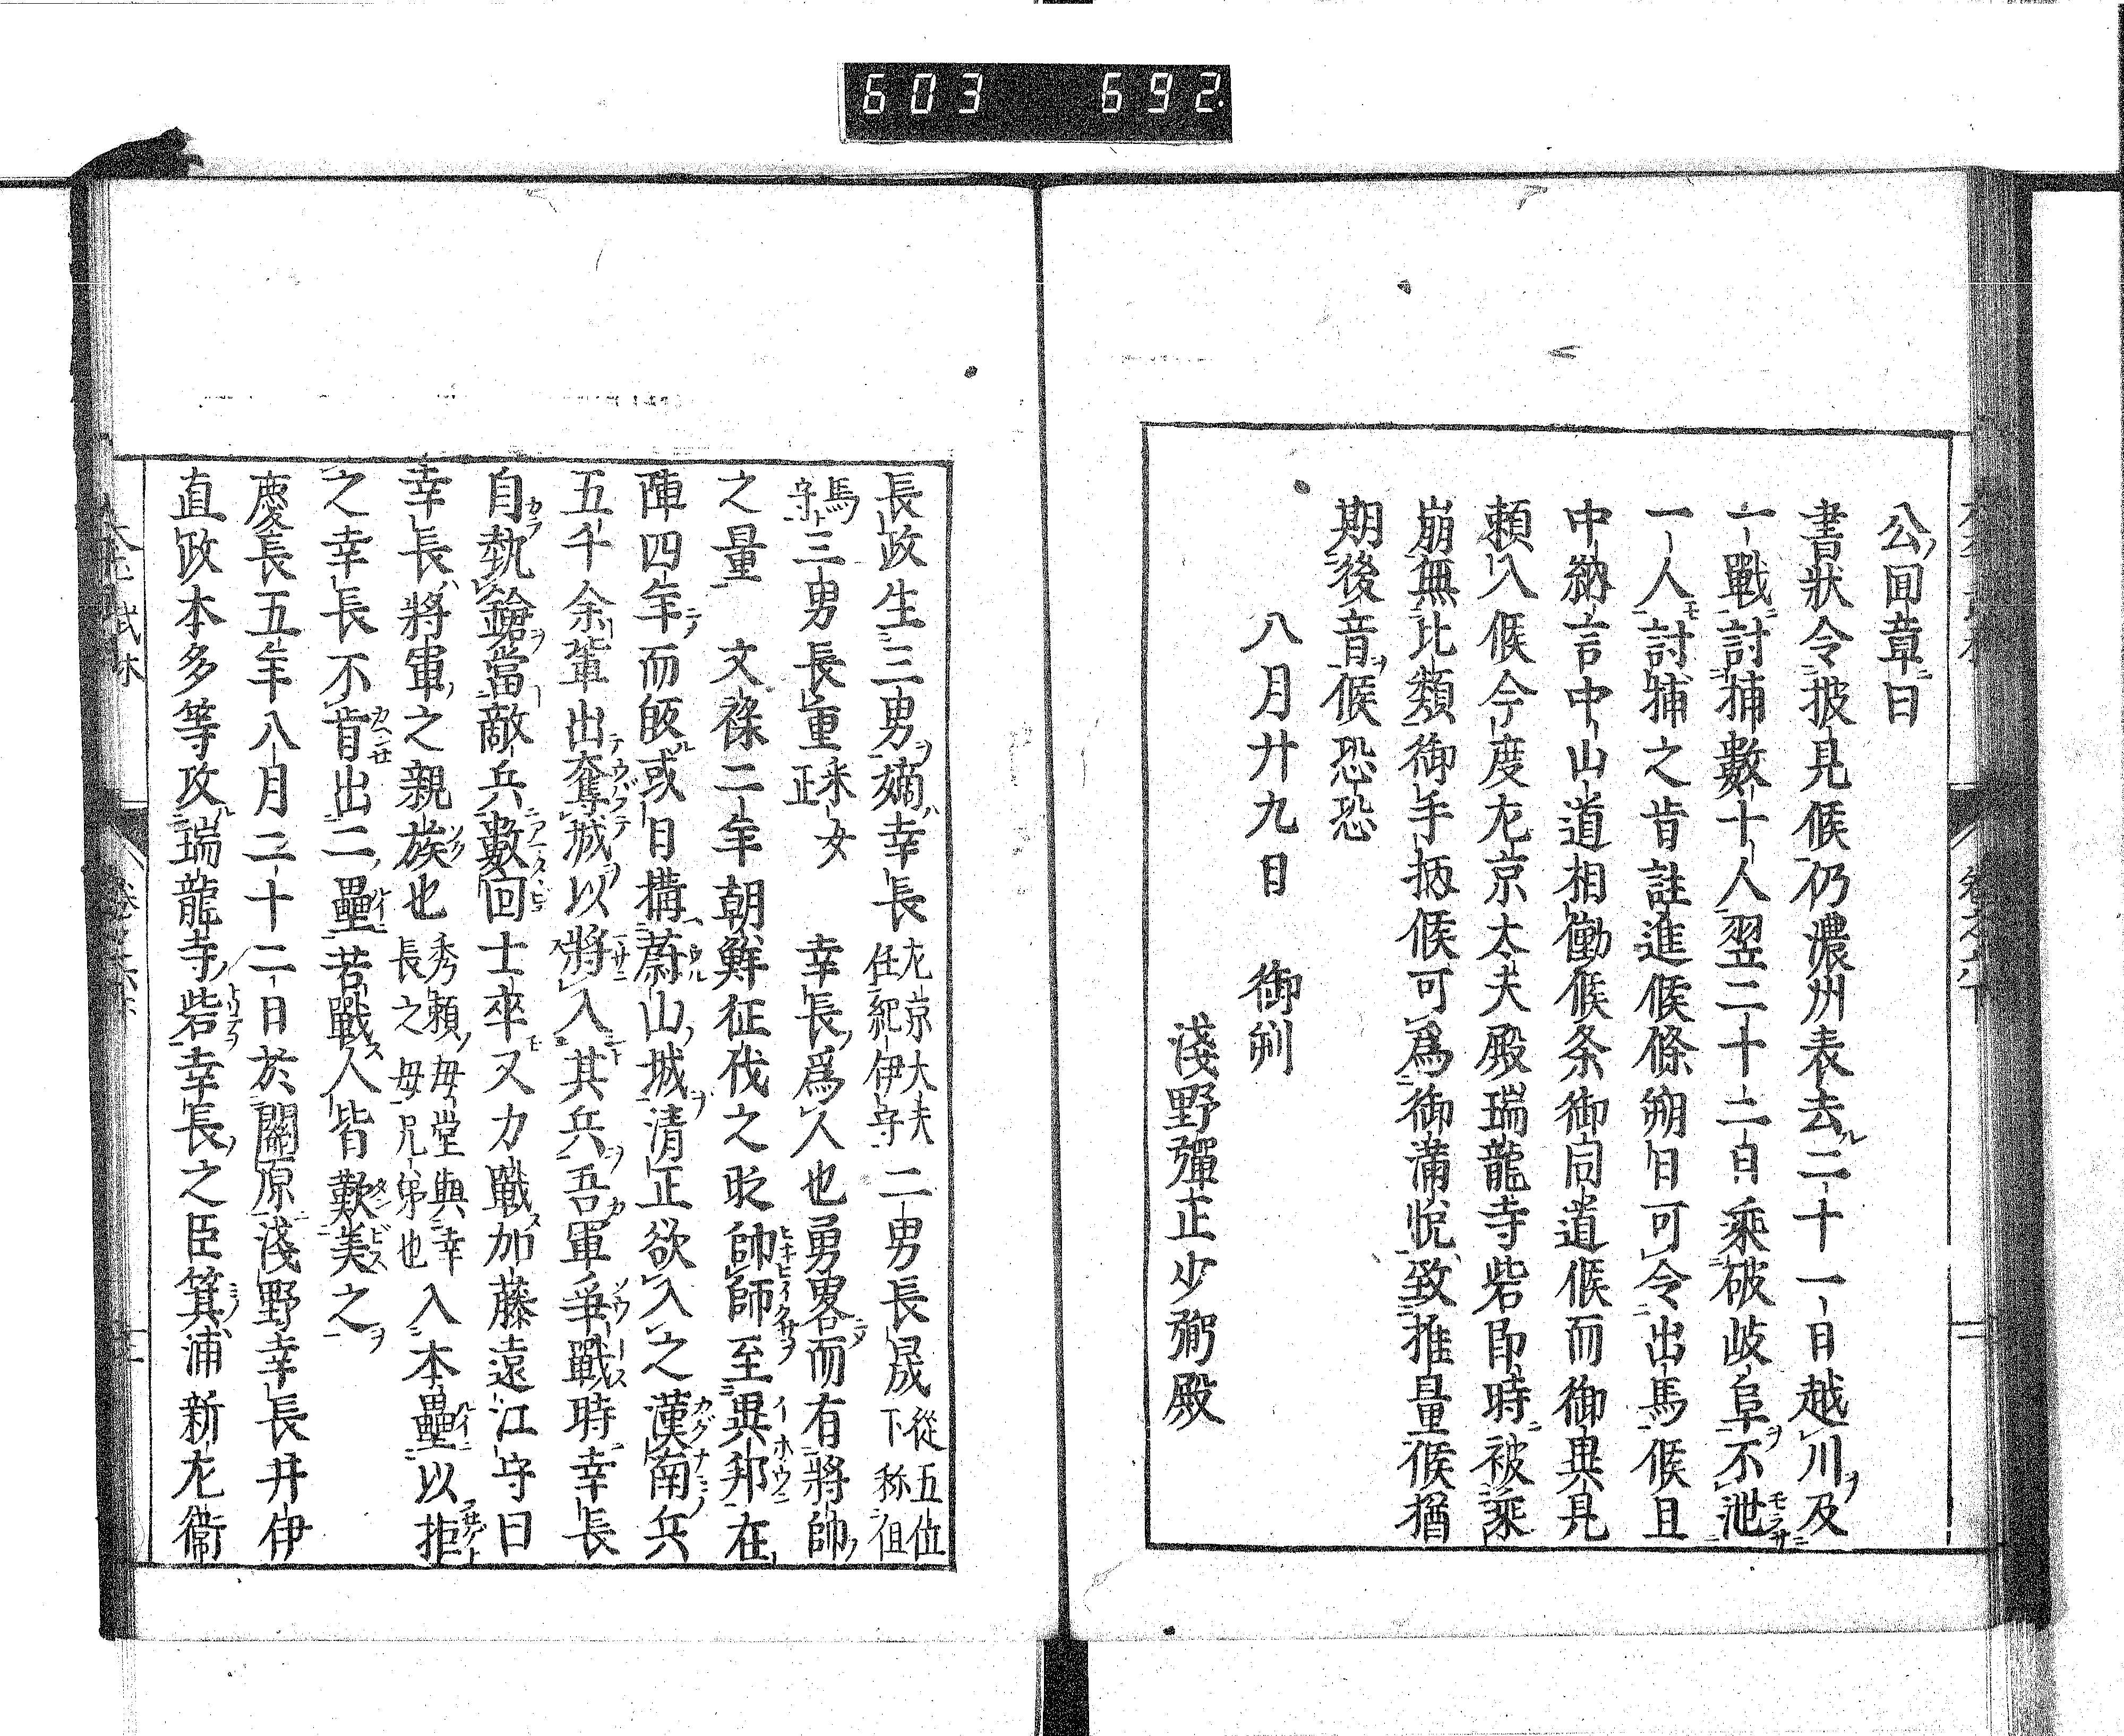 603 692.
公回章曰
書狀令披見候仍濃州表去二十一日越川及
一戰討捕數十人翌二十二日乘破歧阜不泄
一人討捕之肯註進候條朔日可令出馬候且
中納言中山道相働候条御同道候而御異見
頼入候今度左京太夫殿瑞龍寺砦即時被乘
崩無比類御手柄候可爲御滿悅致推量候猶
期後音候恐恐
八月廿九日 御判
淺野彈正少弼殿
長政生三男嫡幸長左京大夫任紀伊守二男長晟從五位下称徂
馬守三男長重采女正 幸長爲人也勇畧而有將帥
之量 文祿二年朝鮮征伐之時帥師至異邦在
陣四年而皈或日構蔚山城清正欲入之漢南兵
五千余輩出奪城以將入其兵吾軍爭戰時幸長
自執鎗當敵兵數回士卒又力戰加藤遠江守曰
幸長將軍之親族也秀頼母堂與幸長之母兄弟也入本壘以拒
之幸長不肯出二壘苦戰人皆歎美之
慶長五年八月二十二日於關原淺野幸長井伊
直政本多等攻瑞龍寺砦幸長之臣箕浦新左衞